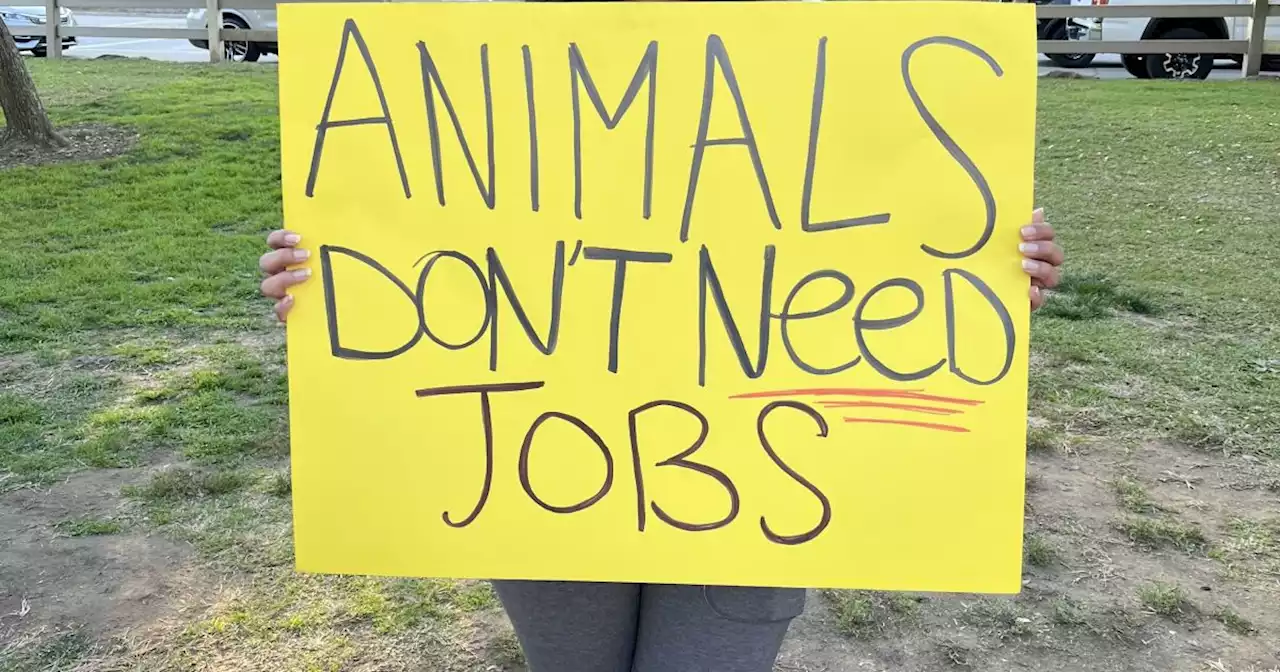 ANIMALS
DON'T NeeD
JOBS